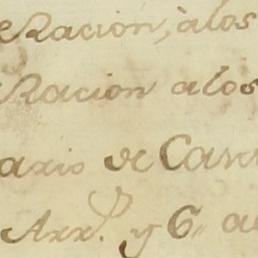 Racion, àlos
Racion alos
ario de Can
Arr.^s y 6,, a